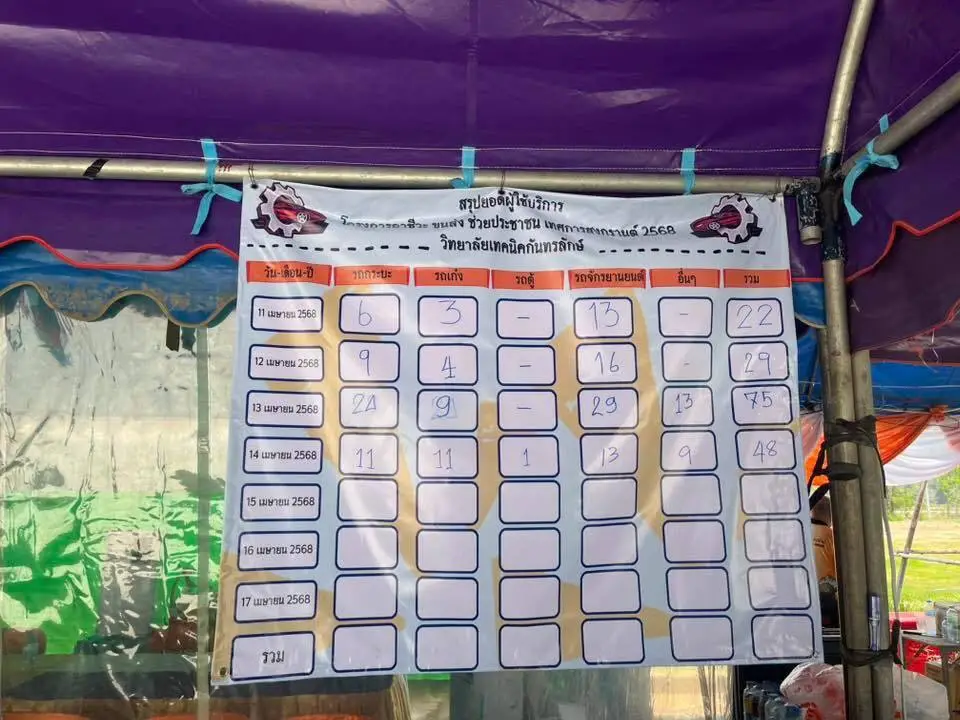 สรุปยอดผู้ใช้บริการ
โครงการอาชีวะ ขนส่ง ช่วยประชาชน เทศกาลสงกรานต์ 2568
วิทยาลัยเทคนิคกันทรลักษ์
วัน-เดือน-ปี รถกระบะ รถเก๋ง รถตู้ รถจักรยานยนต์ อื่นๆ รวม
11 เมษายน 2568 6 3 - 13 - 22
12 เมษายน 2568 9 4 - 16 - 29
13 เมษายน 2568 24 9 - 29 13 75
14 เมษายน 2568 11 11 1 13 9 48
15 เมษายน 2568
16 เมษายน 2568
17 เมษายน 2568
รวม